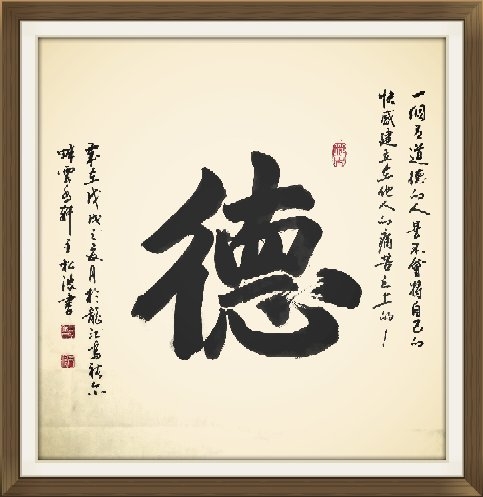 一個有道德的人是不會將自己的
快感建立在他人的痛苦之上的！
德
歲在戊戌之夏月於龍江烏裕尔
畔雲軒主松波書